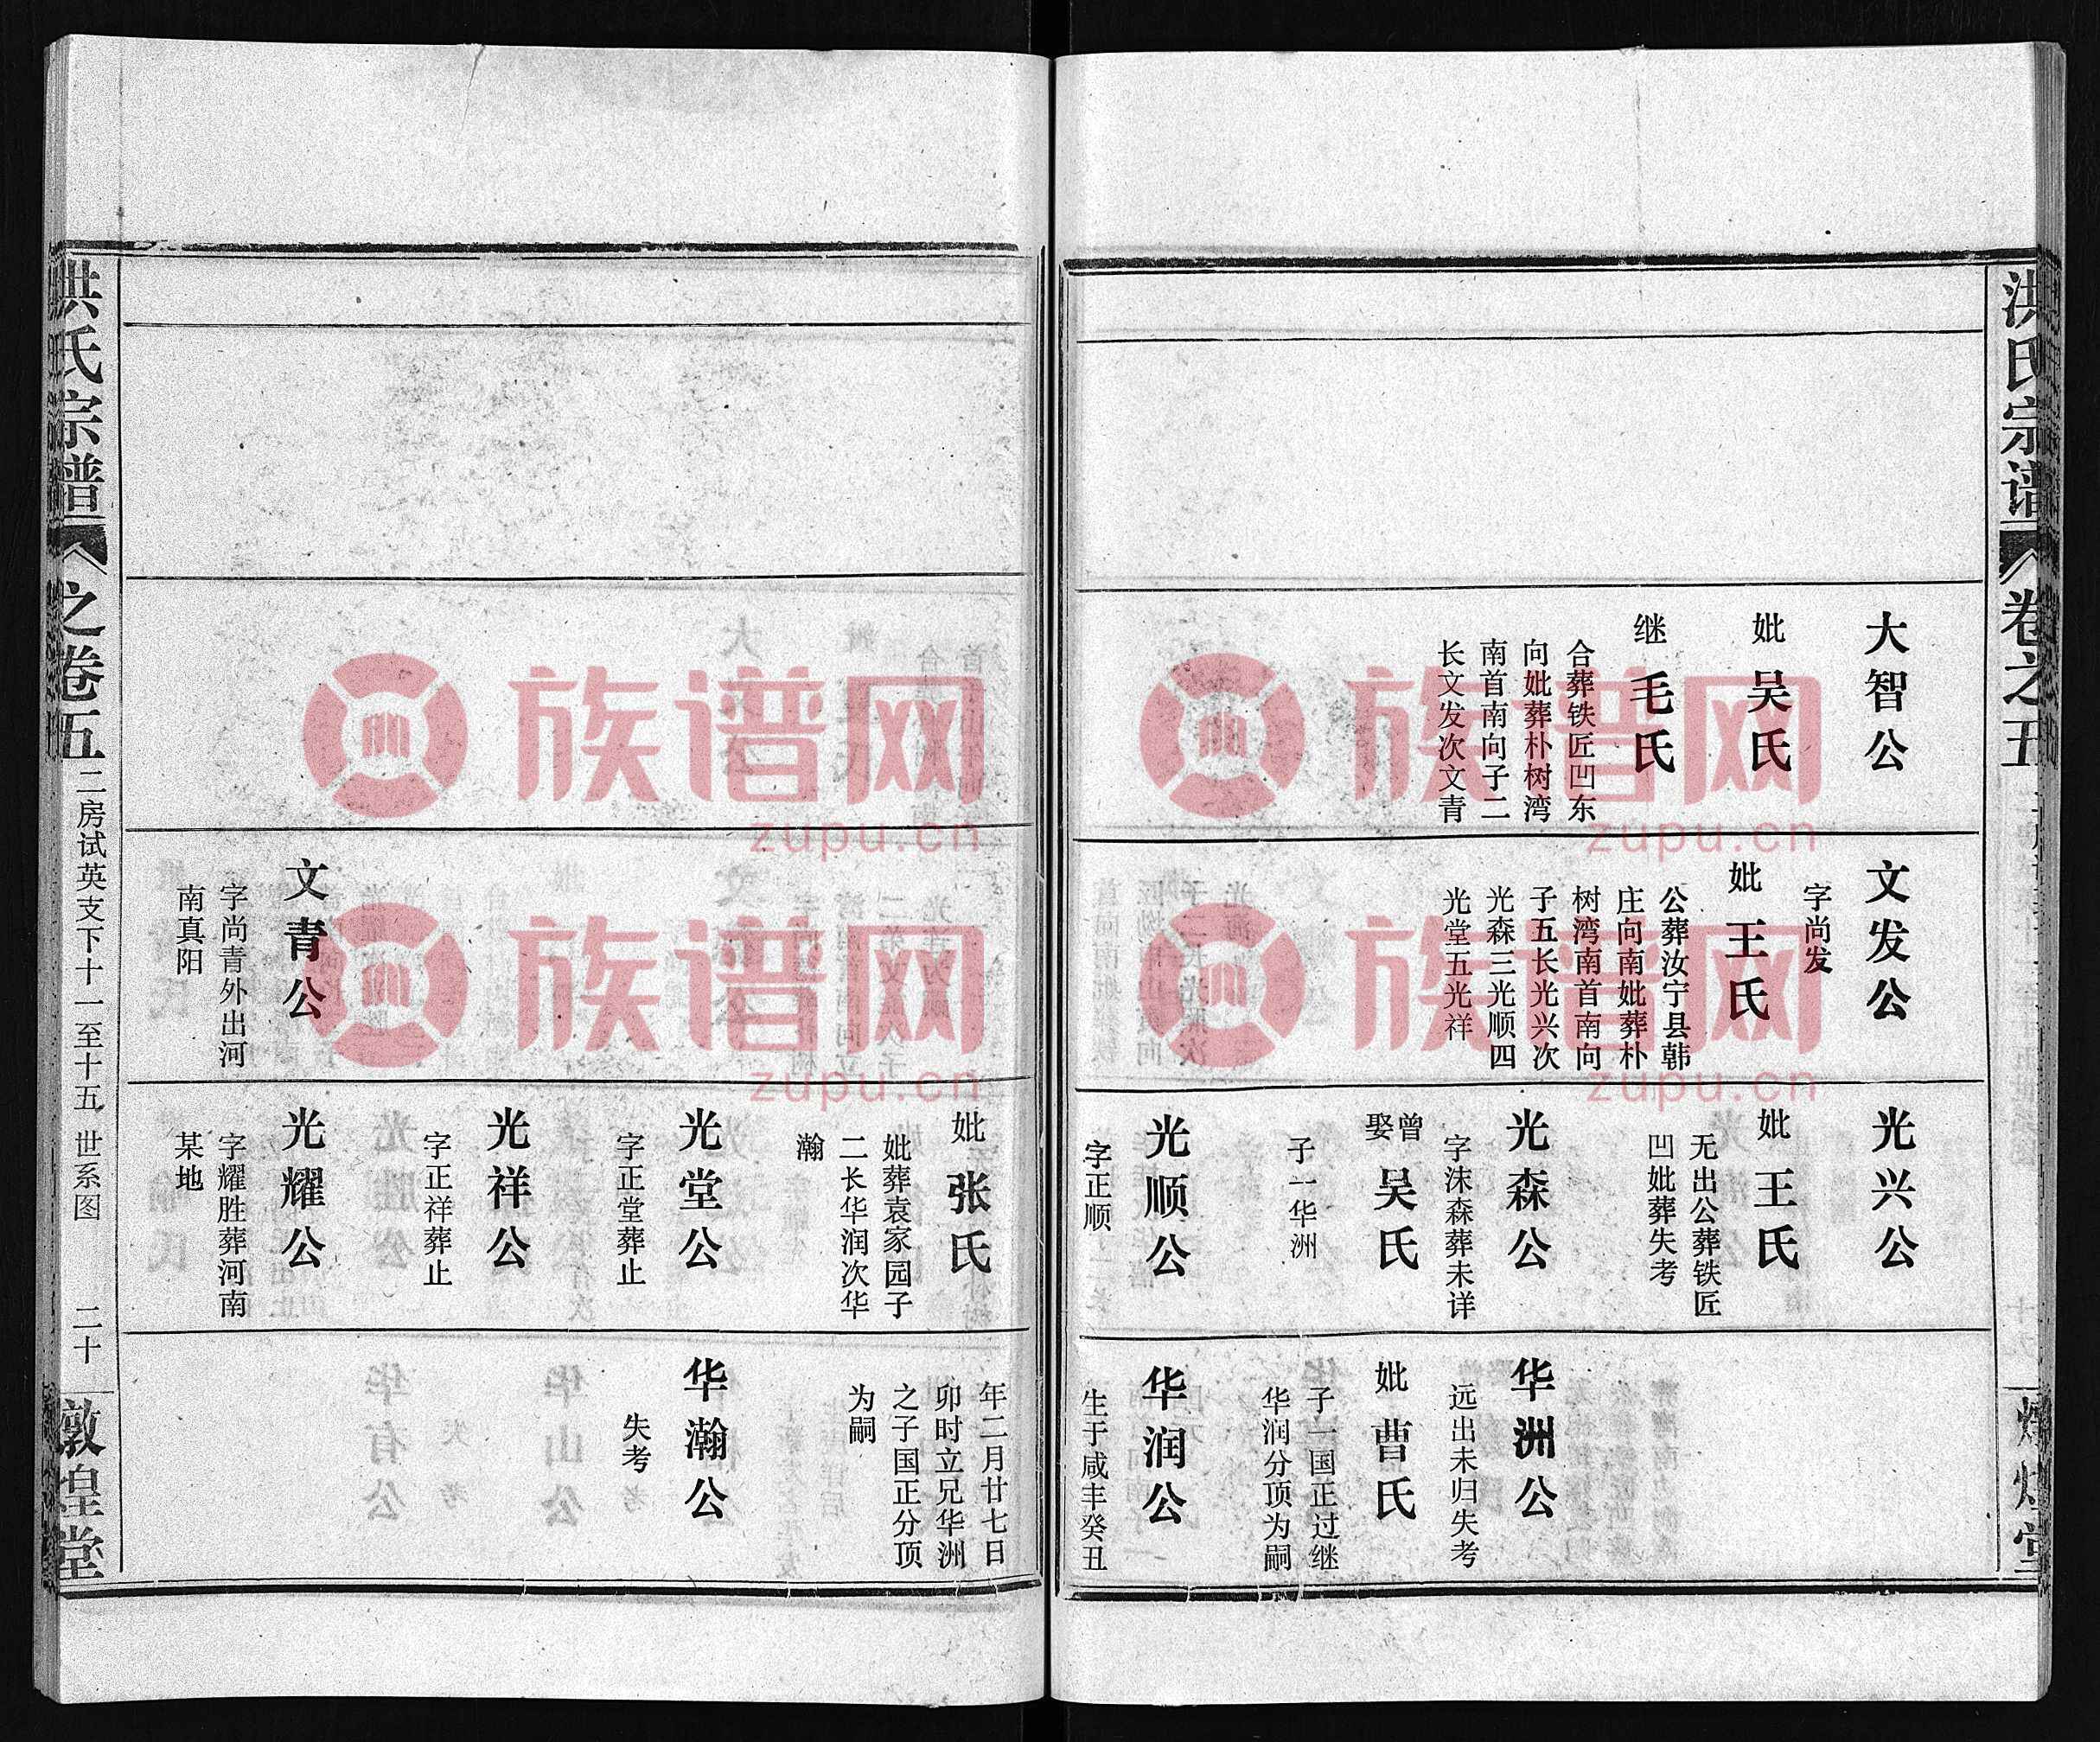 洪氏宗谱
卷之五
大智公
妣 吴氏
继 毛氏
合葬铁匠凹东
向妣葬朴树湾
南首南向子二
长文发次文青
文发公
字尚发
妣 王氏
公葬汝宁县韩
庄向南妣葬朴
树湾南首南向
子五长光兴次
光森三光顺四
光堂五光祥
光兴公
妣 王氏
无出公葬铁匠
凹妣葬失考
光森公
字沫森葬未详
曾娶 吴氏
子一华洲
光顺公
字正顺
华洲公
远出未归失考
妣 曹氏
子一国正过继
华润分顶为嗣
华润公
生于咸丰癸丑
文青公
字尚青外出河
南真阳
妣 张氏
妣葬袁家园子
二长华润次华
瀚
光堂公
字正堂葬止
光祥公
字正祥葬止
光耀公
字耀胜葬河南
某地
年二月廿七日
卯时立兄华洲
之子国正分顶
为嗣
华瀚公
失考
洪氏宗谱
之卷五
二房试英支下十一至十五世系图
二十
敦煌堂
族谱网
zupu.cn
族谱网
zupu.cn
族谱网
zupu.cn
族谱网
zupu.cn